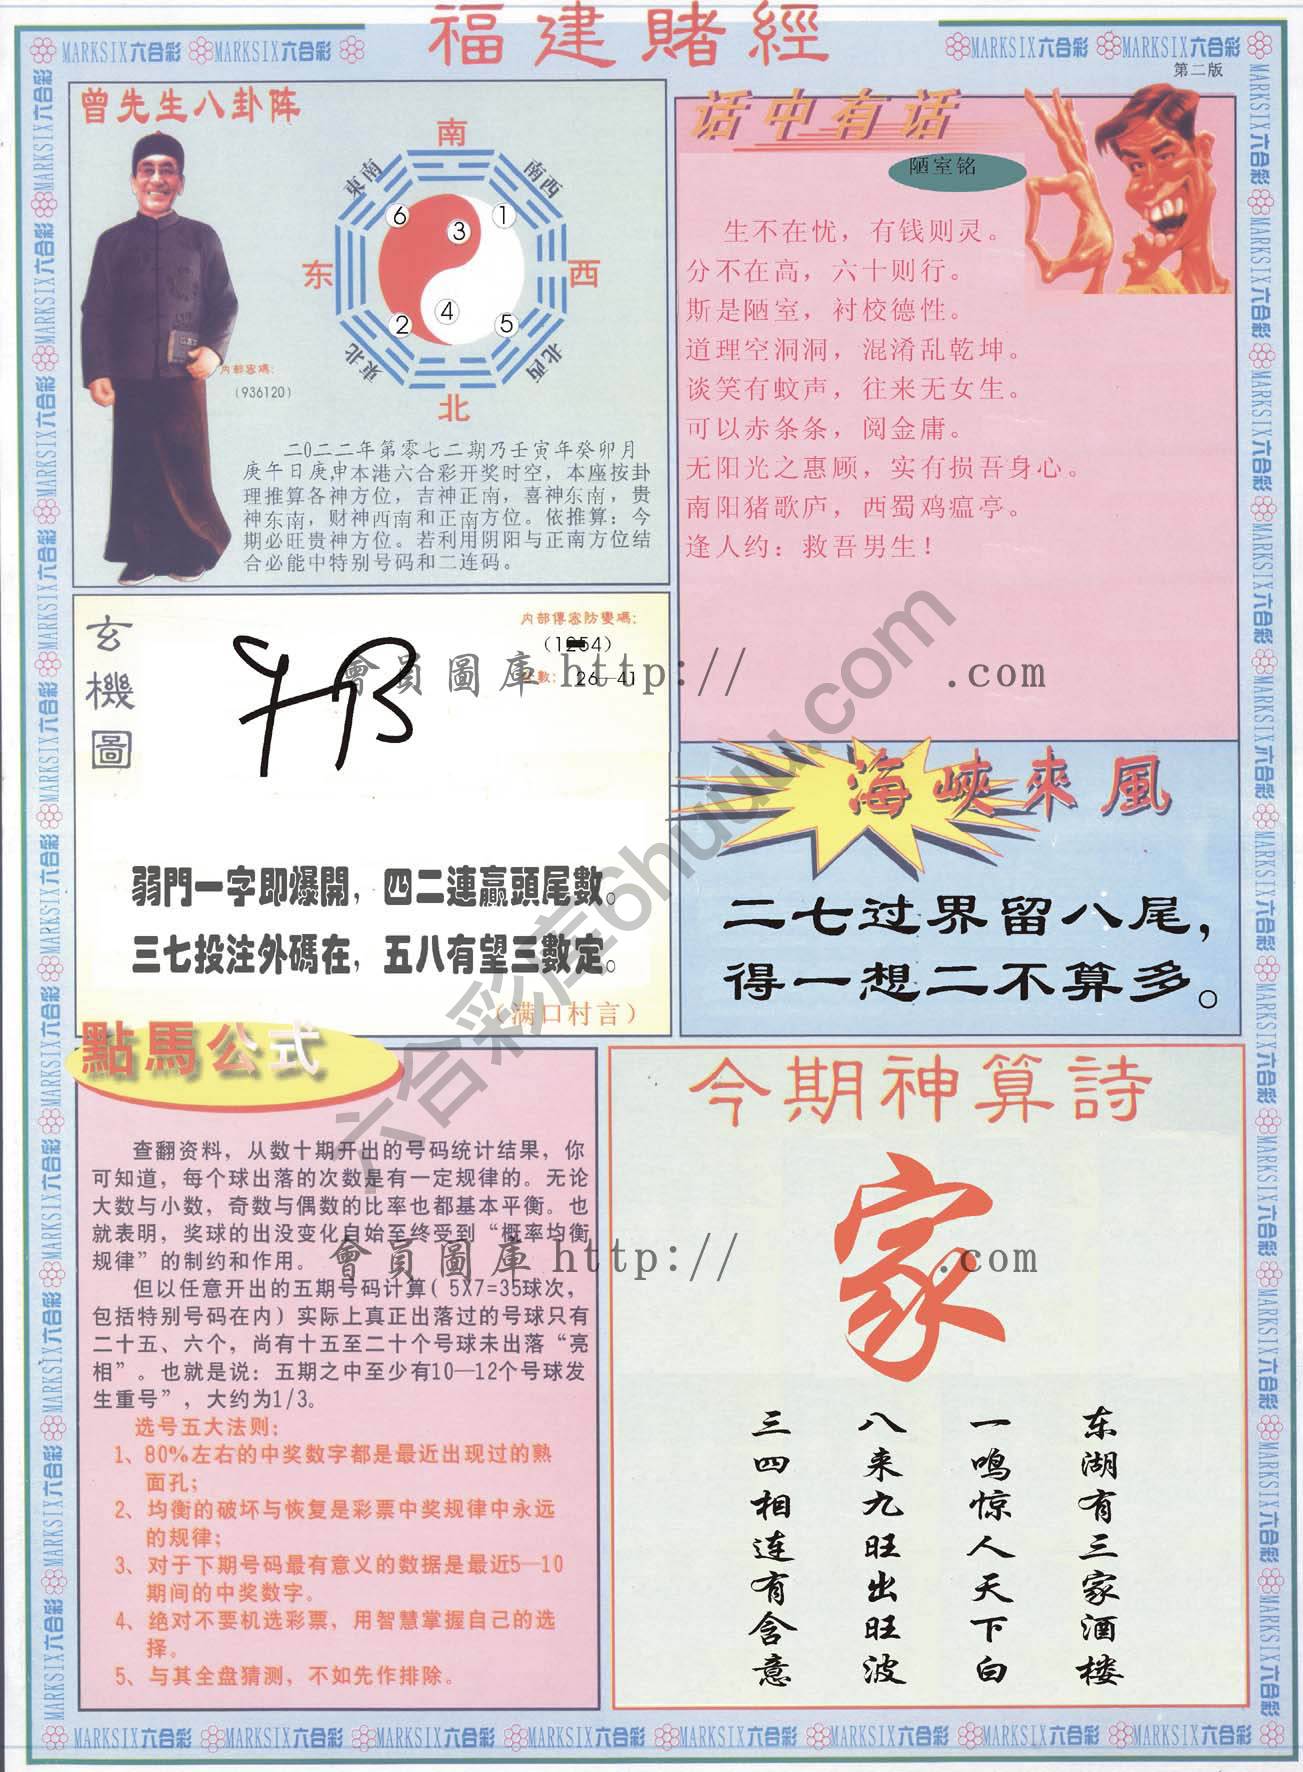 福建賭經
MARKSIX六合彩 MARKSIX六合彩
MARKSIX六合彩 MARKSIX六合彩
第二版
曾先生八卦阵
南
東南
南西
6
1
3
东
西
4
2
5
東北
北西
北
内部密碼:
(936120)
二0二二年第零七二期乃壬寅年癸卯月
庚午日庚申本港六合彩开奖时空,本座按卦
理推算各神方位,吉神正南,喜神东南,贵
神东南,财神西南和正南方位。依推算:今
期必旺贵神方位。若利用阴阳与正南方位结
合必能中特别号码和二连码。
话中有话
陋室铭
生不在忧,有钱则灵。
分不在高,六十则行。
斯是陋室,衬校德性。
道理空洞洞,混淆乱乾坤。
谈笑有蚊声,往来无女生。
可以赤条条,阅金庸。
无阳光之惠顾,实有损吾身心。
南阳猪歌庐,西蜀鸡瘟亭。
逢人约:救吾男生!
玄機圖
内部傳密防變碼:
26—41
會員圖庫 http:// .com
弱門一字即爆開,四二連贏頭尾數。
三七投注外碼在,五八有望三數定。
(满口村言)
海峽來風
二七过界留八尾,
得一想二不算多。
六合彩库6huuu.com
點馬公式
查翻资料,从数十期开出的号码统计结果,你
可知道,每个球出落的次数是有一定规律的。无论
大数与小数,奇数与偶数的比率也都基本平衡。也
就表明,奖球的出没变化自始至终受到“概率均衡
规律”的制约和作用。
但以任意开出的五期号码计算(5X7=35球次,
包括特别号码在内)实际上真正出落过的号球只有
二十五、六个,尚有十五至二十个号球未出落“亮
相”。也就是说:五期之中至少有10—12个号球发
生重号”,大约为1/3。
选号五大法则:
1、80%左右的中奖数字都是最近出现过的熟
面孔;
2、均衡的破坏与恢复是彩票中奖规律中永远
的规律;
3、对于下期号码最有意义的数据是最近5—10
期间的中奖数字。
4、绝对不要机选彩票,用智慧掌握自己的选
择。
5、与其全盘猜测,不如先作排除。
會員圖庫 http:// .com
今期神算詩
家
东湖有三家酒楼
一鸣惊人天下白
八来九旺出旺波
三四相连有含意
MARKSIX六合彩 MARKSIX六合彩 MARKSIX六合彩 MARKSIX六合彩 MARKSIX六合彩 MARKSIX六合彩 MARKSIX六合彩 MARKSIX六合彩